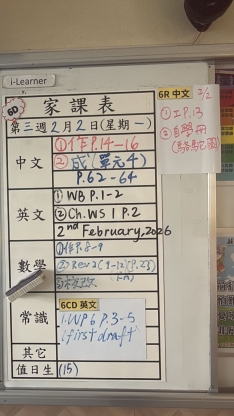 i-Learner
6D
家課表
第三週2月2日(星期一)
中文
①作P.14-16
②成(單元4)
P.62-64
英文
①WB P.1-2
②Ch.WS 1 P.2
2nd February, 2026
數學
①作P.8-9
常識
6CD 英文
1. WP 6 P.3-5
(first draft)
其它
值日生 (15)
6R 中文 2/2
①工P.13
②自學冊